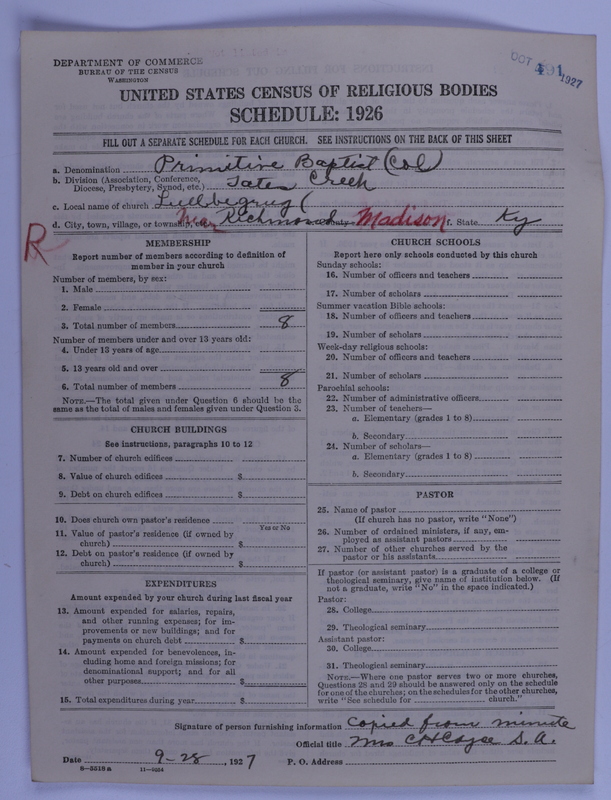 DEPARTMENT OF COMMERCE
BUREAU OF THE CENSUS
WASHINGTON
OCT 1927
491
UNITED STATES CENSUS OF RELIGIOUS BODIES
SCHEDULE: 1926
FILL OUT A SEPARATE SCHEDULE FOR EACH CHURCH. SEE INSTRUCTIONS ON THE BACK OF THIS SHEET
a. Denomination Primitive Baptist (Col)
b. Division (Association, Conference, Diocese, Presbytery, Synod, etc.) Tates Creek
c. Local name of church Lulbegrug
d. City, town, village, or township, Near Richmond County Madison f. State Ky
R
MEMBERSHIP
Report number of members according to definition of
member in your church
Number of members, by sex:
1. Male
2. Female
3. Total number of members 8
Number of members under and over 13 years old:
4. Under 13 years of age
5. 13 years old and over
6. Total number of members 8
NOTE.—The total given under Question 6 should be
same as the total of males and females given under Question 3.
CHURCH BUILDINGS
See instructions, paragraphs 10 to 12
7. Number of church edifices
8. Value of church edifices $
9. Debt on church edifices $
10. Does church own pastor's residence
Yes or No
11. Value of pastor's residence (if owned by
church) $
12. Debt on pastor's residence (if owned by
church) $
EXPENDITURES
Amount expended by your church during last fiscal year
13. Amount expended for salaries, repairs,
and other running expenses; for im-
provements or new buildings; and for
payments on church debt $
14. Amount expended for benevolences, in-
cluding home and foreign missions; for
denominational support; and for all
other purposes $
15. Total expenditures during year $
CHURCH SCHOOLS
Report here only schools conducted by this church
Sunday schools:
16. Number of officers and teachers
17. Number of scholars
Summer vacation Bible schools:
18. Number of officers and teachers
19. Number of scholars
Week-day religious schools:
20. Number of officers and teachers
21. Number of scholars
Parochial schools:
22. Number of administrative officers
23. Number of teachers—
a. Elementary (grades 1 to 8)
b. Secondary
24. Number of scholars—
a. Elementary (grades 1 to 8)
b. Secondary
PASTOR
25. Name of pastor
(If church has no pastor, write "None")
26. Number of ordained ministers, if any, em-
ployed as assistant pastors
27. Number of other churches served by the
pastor or his assistants
If pastor (or assistant pastor) is a graduate of a college or
theological seminary, give name of institution below. (If
not a graduate, write "No" in the space indicated.)
Pastor:
28. College
29. Theological seminary
Assistant pastor:
30. College
31. Theological seminary
NOTE.—Where one pastor serves two or more churches,
Questions 28 and 29 should be answered only on the schedule
for one of the churches; on the schedules for the other churches,
write "See schedule for church."
Signature of person furnishing information Copied from minute
Official title Mrs C H Cayce S. A.
Date 9-28, 1927 P. O. Address
8-5518 a 11-9554